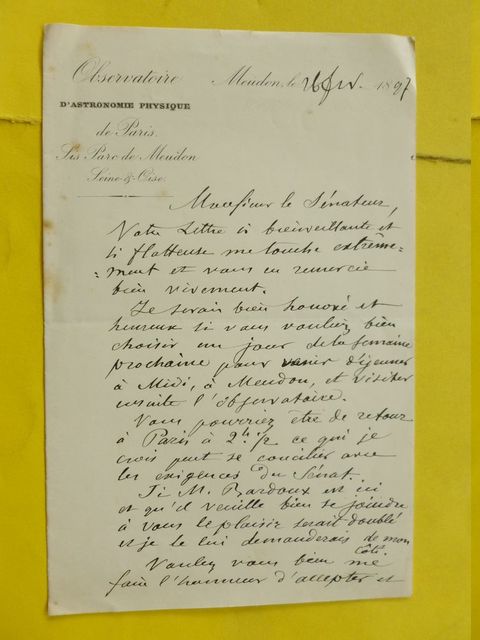 Observatoire
D'ASTRONOMIE PHYSIQUE
de Paris.
Sis Parc de Meudon
Seine-&-Oise.
Meudon, le 26 fév. 1897
Monsieur le Sénateur,
Votre lettre si bienveillante et
si flatteuse me touche extrême-
-ment et vous en remercie
bien vivement.
Je serais bien honoré et
heureux si vous vouliez bien
choisir un jour de la semaine
prochaine pour venir déjeuner
à Midi, à Meudon, et visiter
ensuite l'observatoire.
Vous pourriez être de retour
à Paris à 2h 1/2 ce qui je
crois peut se concilier avec
les exigences du Sénat.
Si M. Bardoux est ici
et qu'il veuille bien se joindre
à vous le plaisir serait doublé
et je le lui demanderais de mon
côté.
Veuillez vous bien me
faire l'honneur d'accepter et